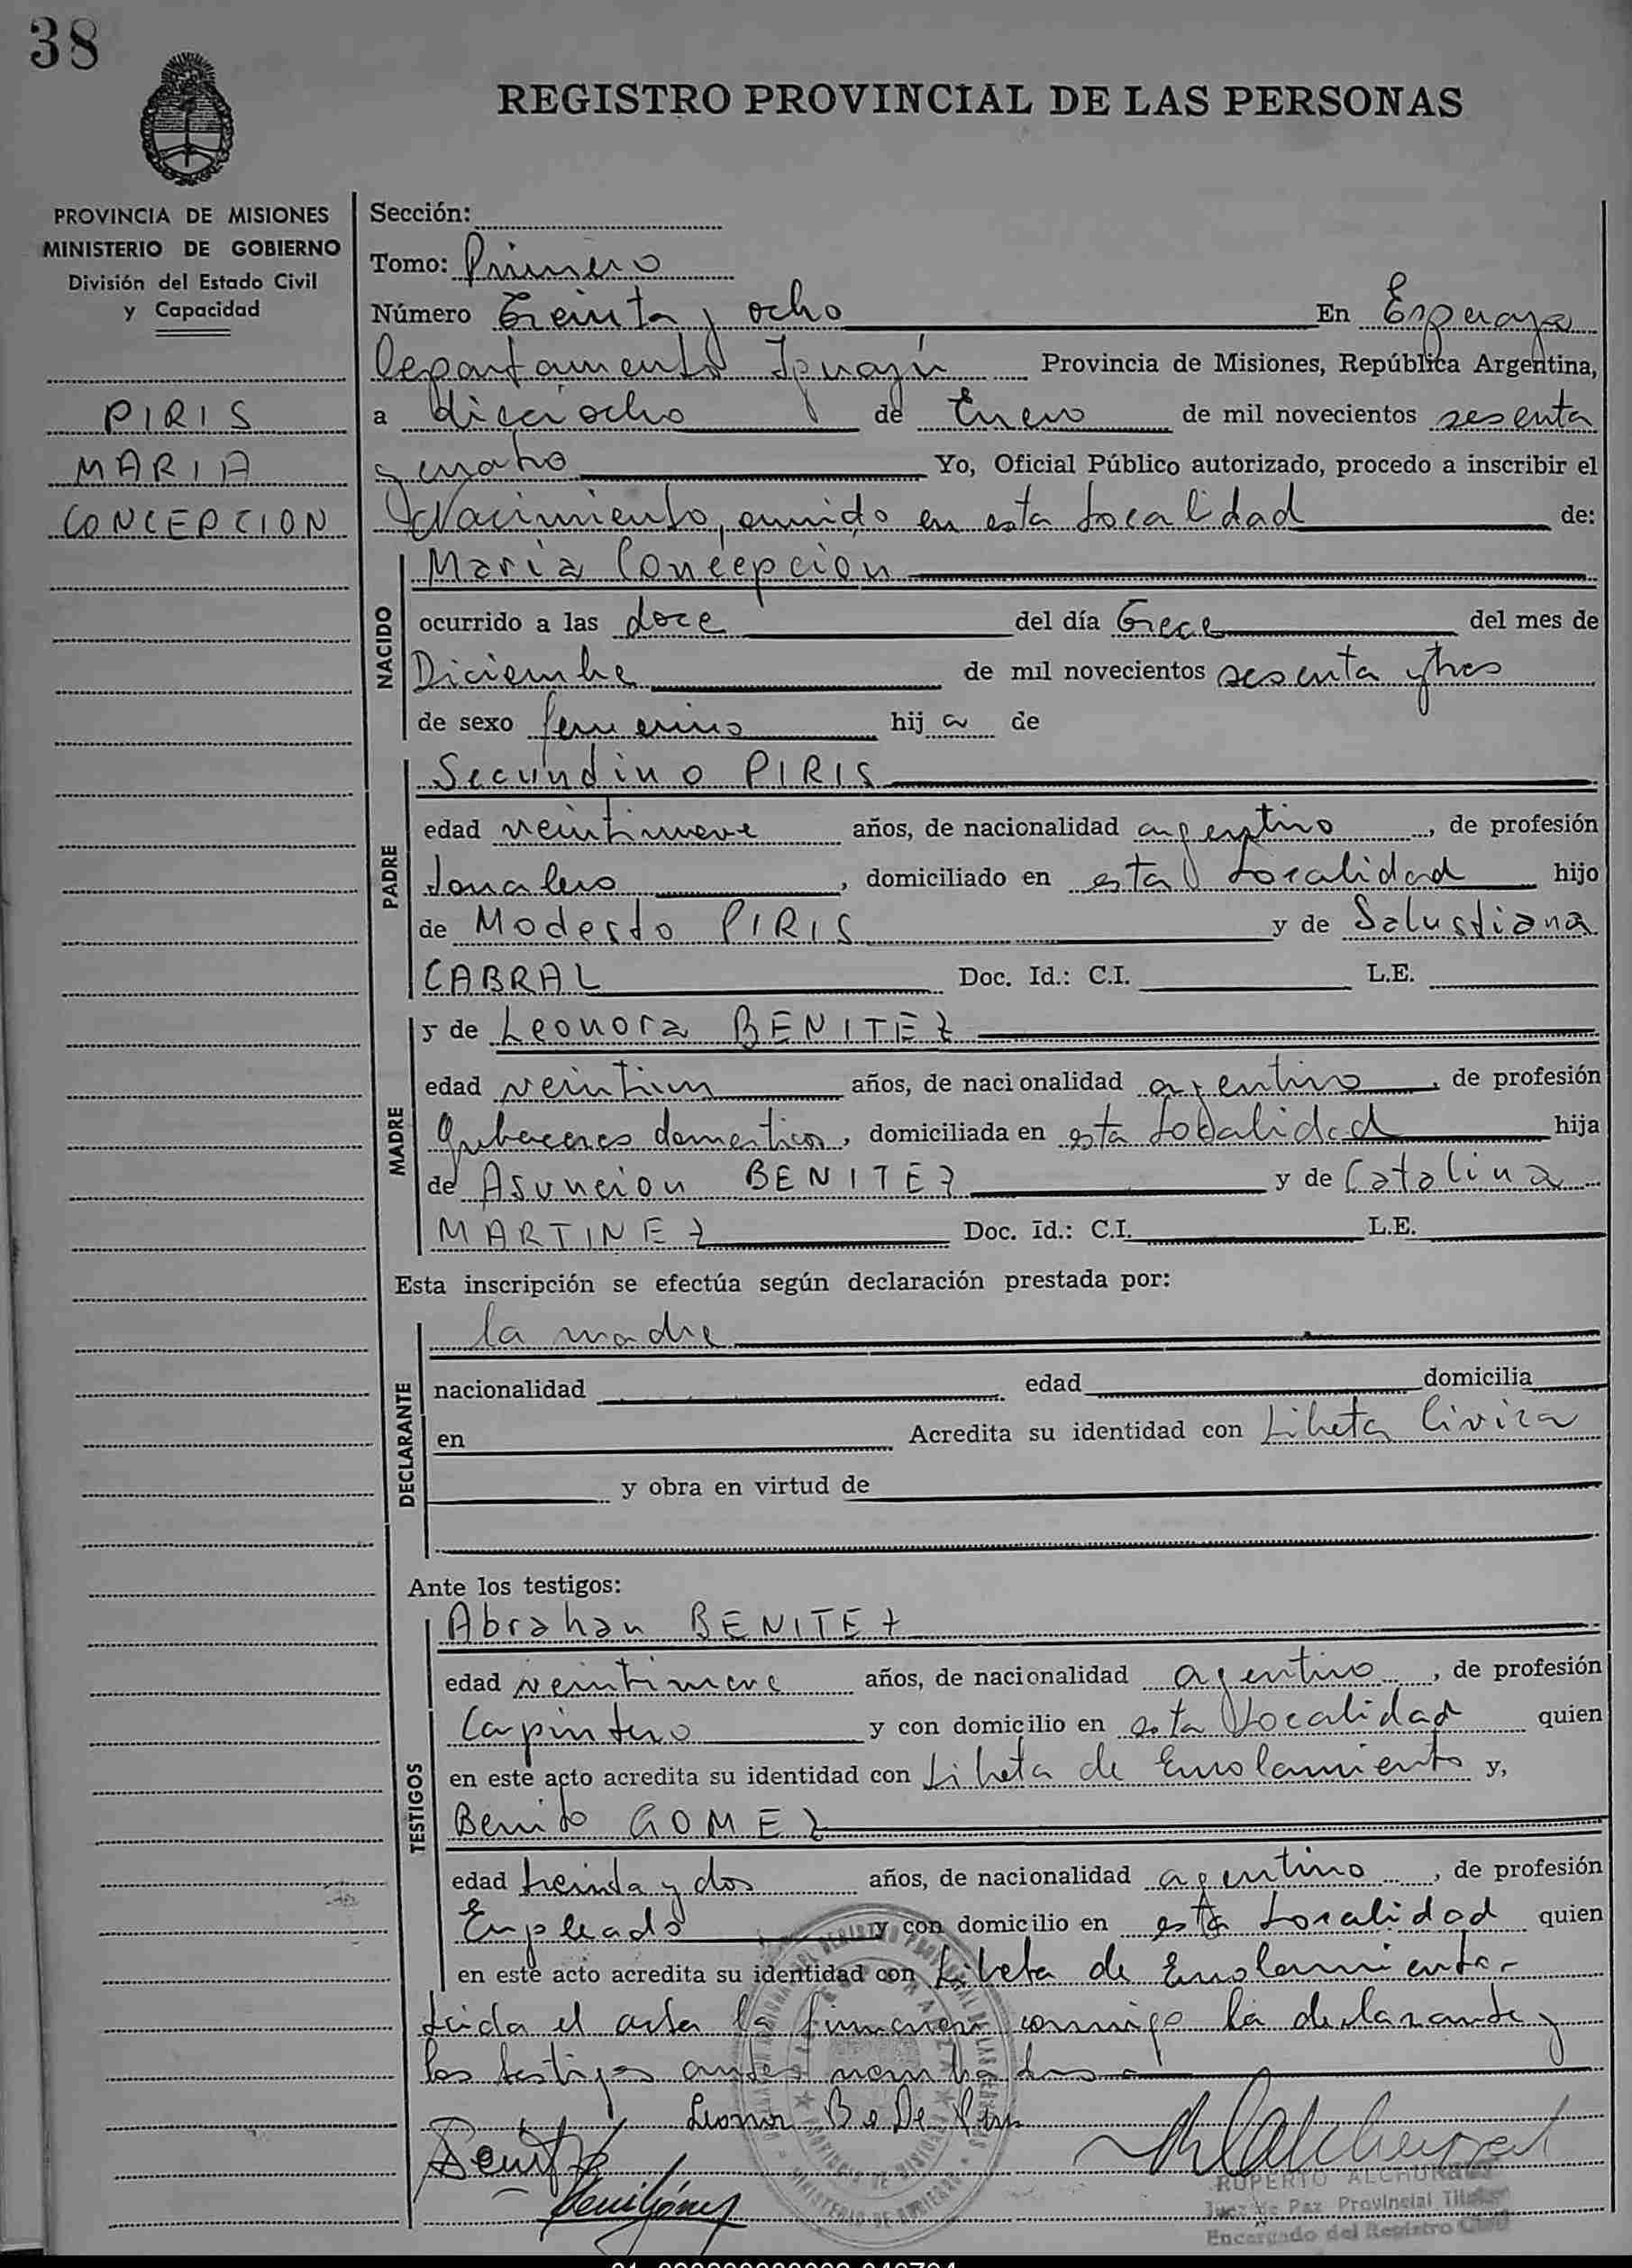 38
REGISTRO PROVINCIAL DE LAS PERSONAS
PROVINCIA DE MISIONES
MINISTERIO DE GOBIERNO
División del Estado Civil
y Capacidad
PIRIS
MARIA
CONCEPCION
Sección:
Tomo: Primero
Número Treinta y ocho En Esperaza
Departamento Iguazú Provincia de Misiones, República Argentina,
a dieciocho de Enero de mil novecientos sesenta
y cuatro Yo, Oficial Público autorizado, procedo a inscribir el
Nacimiento, ocurrido en esta localidad de:
NACIDO
María Concepción
ocurrido a las doce del día Trece del mes de
Diciembre de mil novecientos sesenta y tres
de sexo femenino hij a de
PADRE
Secundino PIRIS
edad veintinueve años, de nacionalidad argentino, de profesión
Jornalero, domiciliado en esta localidad hijo
de Modesto PIRIS y de Salustiana
CABRAL Doc. Id.: C.I. L.E.
MADRE
y de Leonora BENITEZ
edad veintiun años, de nacionalidad argentina, de profesión
Quehaceres domesticos, domiciliada en esta localidad hija
de Asuncion BENITEZ y de Catalina
MARTINEZ Doc. Id.: C.I. L.E.
Esta inscripción se efectúa según declaración prestada por:
DECLARANTE
la madre
nacionalidad edad domicilia
en Acredita su identidad con Libreta Civica
y obra en virtud de
Ante los testigos:
TESTIGOS
Abrahan BENITEZ
edad veintinueve años, de nacionalidad argentino, de profesión
Carpintero y con domicilio en esta localidad quien
en este acto acredita su identidad con Libreta de Enrolamiento y,
Benito GOMEZ
edad treinta y dos años, de nacionalidad argentino, de profesión
Empleado y con domicilio en esta localidad quien
en este acto acredita su identidad con Libreta de Enrolamiento.-
Leida el acta la firmaron conmigo la declarante y
los testigos antes nombrados
Leonor B. De Piris
RUPERTO
Juez de Paz Provincial Titular
Encargado del Registro Civil